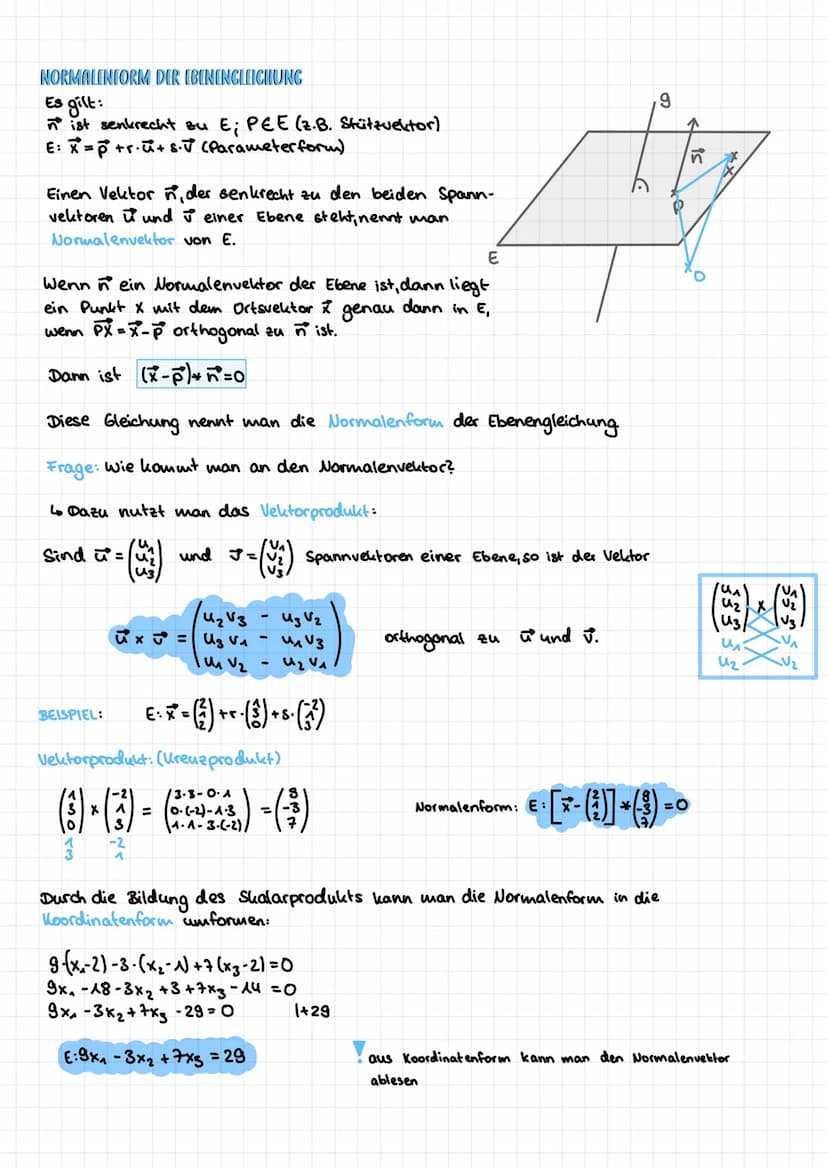 NORMALENFORM DER EBENENGLEICHUNG
Es gilt:
n⃗ ist senkrecht zu E; P∈E (z.B. Stützvektor)
E: x⃗ = p⃗ + r·u⃗ + s·v⃗ (Parameterform)
g
n⃗
x
P
E
O
Einen Vektor n⃗, der senkrecht zu den beiden Spann-
vektoren u⃗ und v⃗ einer Ebene steht, nennt man
Normalenvektor von E.
Wenn n⃗ ein Normalenvektor der Ebene ist, dann liegt
ein Punkt X mit dem Ortsvektor x⃗ genau dann in E,
wenn PX⃗ = x⃗ - p⃗ orthogonal zu n⃗ ist.
Dann ist (x⃗ - p⃗) * n⃗ = 0
Diese Gleichung nennt man die Normalenform der Ebenengleichung
Frage: Wie kommt man an den Normalenvektor?
↳ Dazu nutzt man das Vektorprodukt:
Sind u⃗ = (u₁ u₂ u₃) und v⃗ = (v₁ v₂ v₃) Spannvektoren einer Ebene, so ist der Vektor
u⃗ x v⃗ = (u₂v₃ - u₃v₂
u₃v₁ - u₁v₃
u₁v₂ - u₂v₁) orthogonal zu u⃗ und v⃗.
(u₁ u₂ u₃) x (v₁ v₂ v₃)
u₁ v₁
u₂ v₂
BEISPIEL: E: x⃗ = (2 1 2) + r·(1 3 0) + s·(-2 1 3)
Vektorprodukt: (Kreuzprodukt)
(1 3 0) x (-2 1 3) = (3·3-0·1 0·(-2)-1·3 1·1-3·(-2)) = (9 -3 7)
1 -2
3 1
Normalenform: E: [x⃗ - (2 1 2)] * (9 -3 7) = 0
Durch die Bildung des Skalarprodukts kann man die Normalenform in die
Koordinatenform umformen:
9·(x₁-2) -3·(x₂-1) +7(x₃-2) = 0
9x₁ -18 -3x₂ +3 +7x₃ -14 = 0
9x₁ -3x₂ +7x₃ -29 = 0 |+29
E: 9x₁ -3x₂ +7x₃ = 29
! aus Koordinatenform kann man den Normalenvektor
ablesen